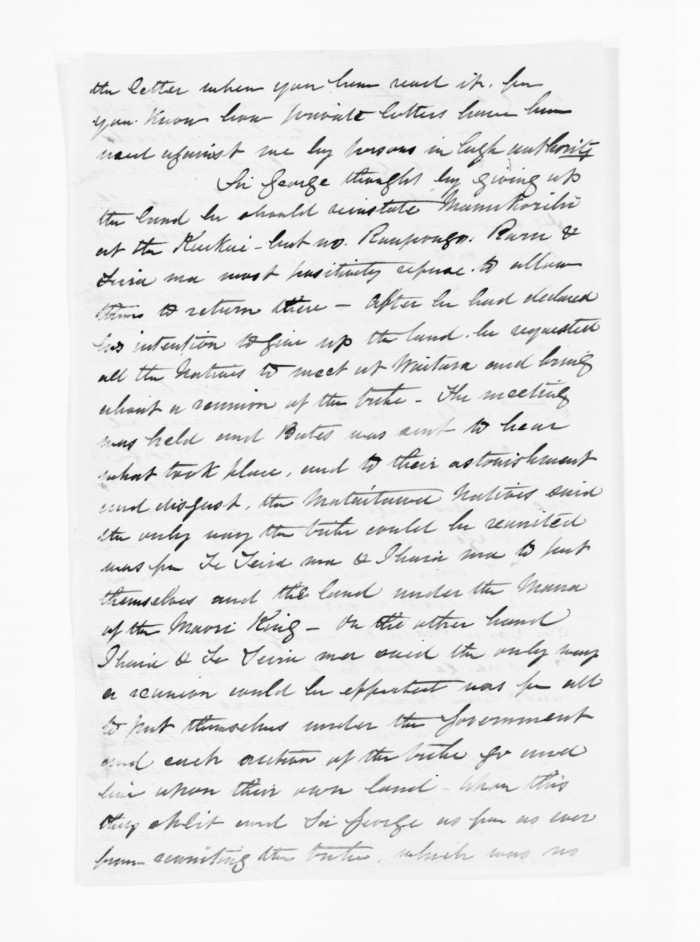 the letter when you have read it. for
you know how private letters have been
used against me by persons in high authority
Sir George thought by giving up
the land he should reinstate Manukorihi
at the Kuikui - but no. Raru &
Teira ma most positively refuse to allow
them to return there - After he had declared
his intention to give up the land. he requested
all the Natives to meet at Waitara and bring
about a reunion of the tribe - The meeting
was held and Bates was sent to hear
what took place, and to their astonishment
and disgust, the Mataitawa Natives said
the only way the tribe could be reunited
was for Te Teira ma & Ihaia ma to put
themselves and the land under the Mana
of the Maori King - On the other hand
Ihaia & Te Teira ma said the only way
a reunion could be effected was for all
to put themselves under the Government
and each section of the tribe go and
live upon their own land - Upon this
they split and Sir George as far as ever
from reuniting the tribe, which was no